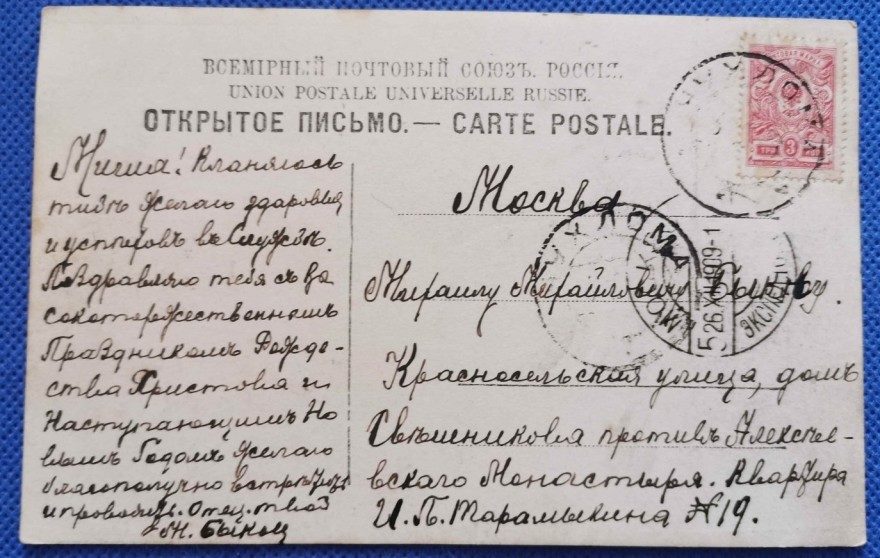 ВСЕМІРНЫЙ ПОЧТОВЫЙ СОЮЗЪ. РОССІЯ.
UNION POSTALE UNIVERSELLE RUSSIE.
ОТКРЫТОЕ ПИСЬМО. — CARTE POSTALE.
Миша! Кланяюсь
тибѣ желаю здаровья
и успѣховъ въ Службѣ.
Поздравляю тебя съ вы
сокоторжественнымъ
Праздникомъ Рожде-
ства Христова и
Наступающимъ Но
вымъ Годомъ желаю
благополучно встрѣтить
и проводить. Отец твой
М. Быков
Москва
Михаилу Михайловичу Быкову.
Красносельская улица, домъ
Свѣшникова противъ Алексѣе-
вскаго Монастыря. Квартира
И. П. Тарамыкина №19.
ЧУХЛОМА
3
ЧУХЛОМА
526.XII.1909-1